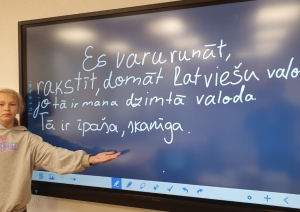 Es varu runāt,
rakstīt, domāt latviešu valo
jo tā ir mana dzimtā valoda
Tā ir īpaša, skanīga.